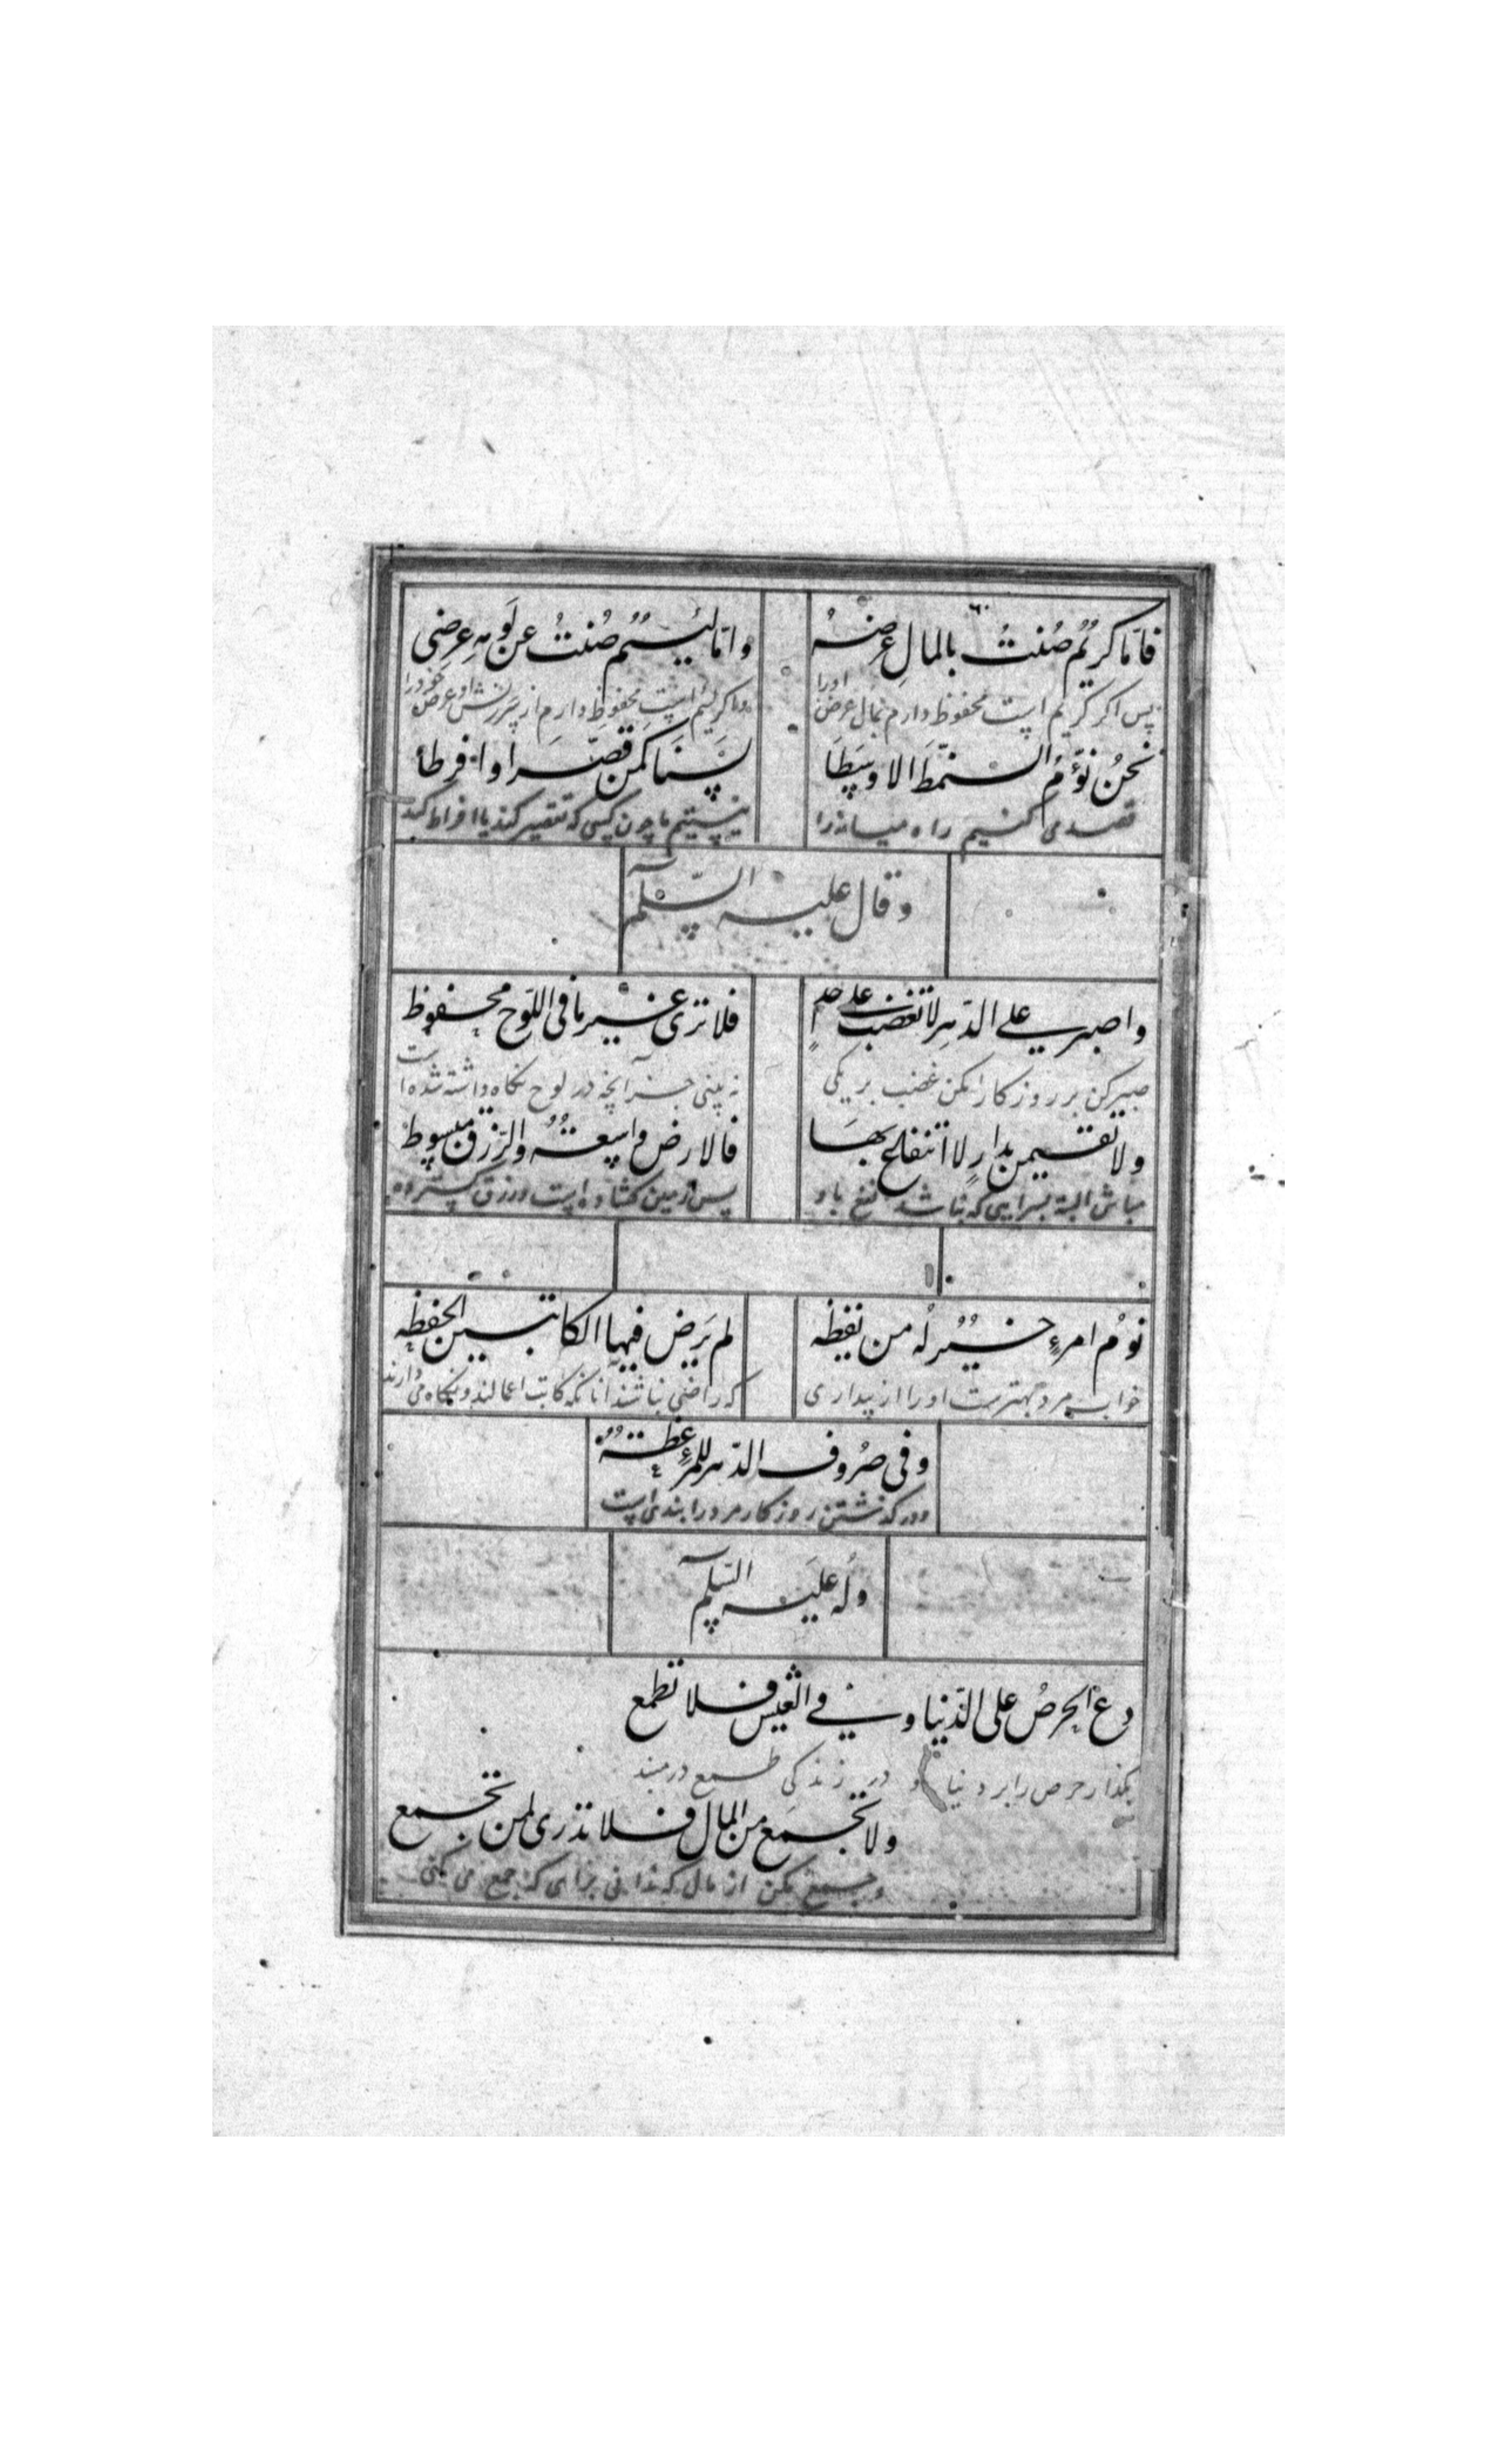 فامّا كريُمٌ صُنتُ بالمالِ عِرضهُ
وامّا ليئمٌ صُنتُ عن لَومِهِ عِرضِى
پس اگر کریم است محفوظ دارم بمال عرض اورا
واگر لئیم است محفوظ دارم از سرزنش او عرض خود را
نحنُ نَؤمُّ النمطَ الاوسَطَا
لسنَا كمن قصّر او افرطا
قصد می کنیم راه میانه را
نیستیم ما چون کسی که تقصیر کند یا افراط کند
وقال عليه السّلم
واصبر على الدّهرِ لا تغضب على احدٍ
فلا ترى غير ما فى اللّوح محفوظ
صبر کن بر روزگار مکن غضب بر یکی
نه بینی جز آنچه در لوح نگاه داشته شده است
ولا تقيمن بدارٍ لا انتفاع بهَا
فالارض واسعةٌ والرّزق مبسوط
مباش البته بسرایی که نباشد نفع باو
پس زمین گشاده است ورزق گسترده
نومُ امرءٍ خيرٌ لُه من يقظه
لم يَرض فيها الكاتبين الحفظه
خواب مرد بهترست اورا از بیداری
که راضی نباشند آنانکه کاتب اعمالند و نگاه می دارند
وفى صُروف الدّهر للمرءِ عِظةٌ
ودر گذشتن روزگار مرد را پندی است
ولُه عليَه السّلم
دع الحرصُ على الدّنيا و فى العيش فلا تطمع
بگذار حرص را بر دنیا و در زندگی طمع در مبند
ولا تجمَع من المال فلا تدرى لمن تجمع
وجمع مکن از مال که ندانی برای که جمع می کنی